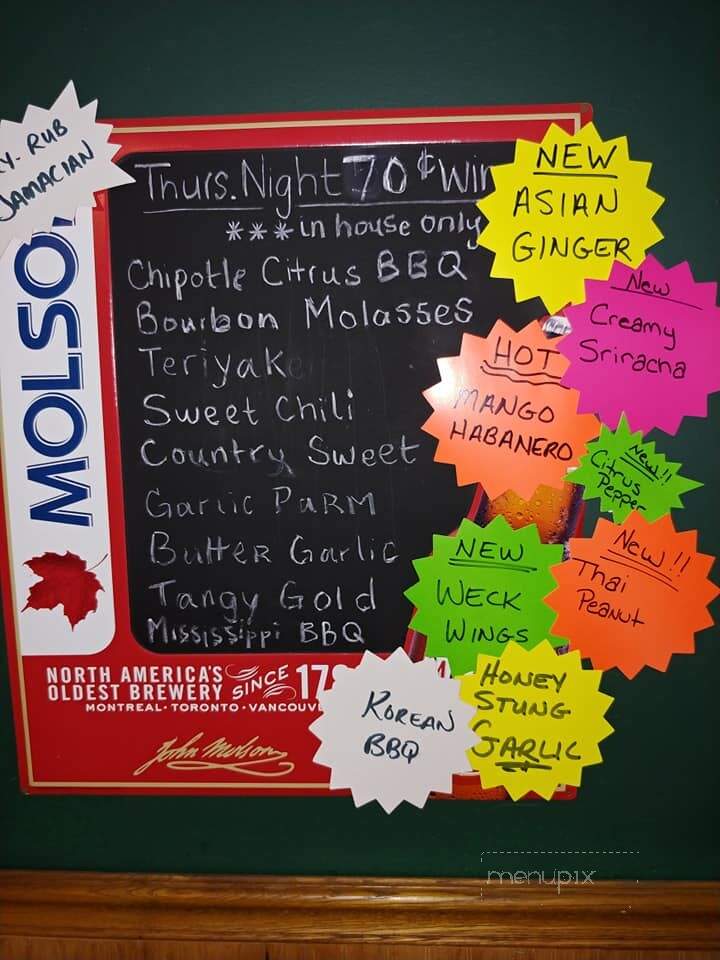 Y-RUB
JAMACIAN
MOLSO
Thurs. Night 70¢ Win
*** in house only
Chipotle Citrus BBQ
Bourbon Molasses
Teriyak
Sweet Chili
Country Sweet
Garlic PaRM
Butter Garlic
Tangy Gold
Mississippi BBQ
NEW
ASIAN
GINGER
New
Creamy
Sriracha
HOT
MANGO
HABANERO
New!!
Citrus
Pepper
NEW
WECK
WINGS
New!!
Thai
Peanut
HONEY
STUNG
GARLIC
KOREAN
BBQ
NORTH AMERICA'S
OLDEST BREWERY
SINCE 17
MONTREAL · TORONTO · VANCOUV
John Molson
menupix